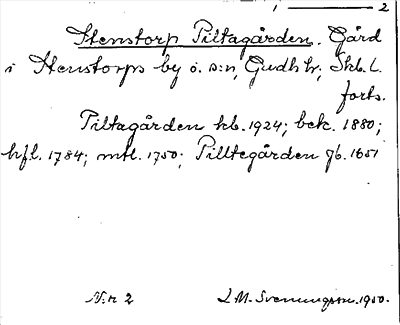 1 ——— 2
Stenstorp Piltagården. Gård
i Stenstorps by o. s:n, Gudh hr, Skb. l.
forts.
Piltagården hb. 1924; bek. 1880;
hfl. 1784; mtl. 1750; Pilltegården jb. 1651
N:r 2 L M. Svenungsson. 1950.